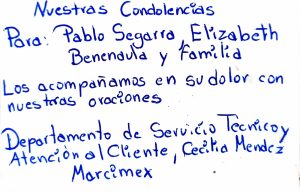 Nuestras Condolencias
Para: Pablo Segarra, Elizabeth
Benenaula y Familia
Los acompañamos en su dolor con
nuestras oraciones
Departamento de Servicio Técnico y
Atención al Cliente, Cecilia Mendez
Marcimex